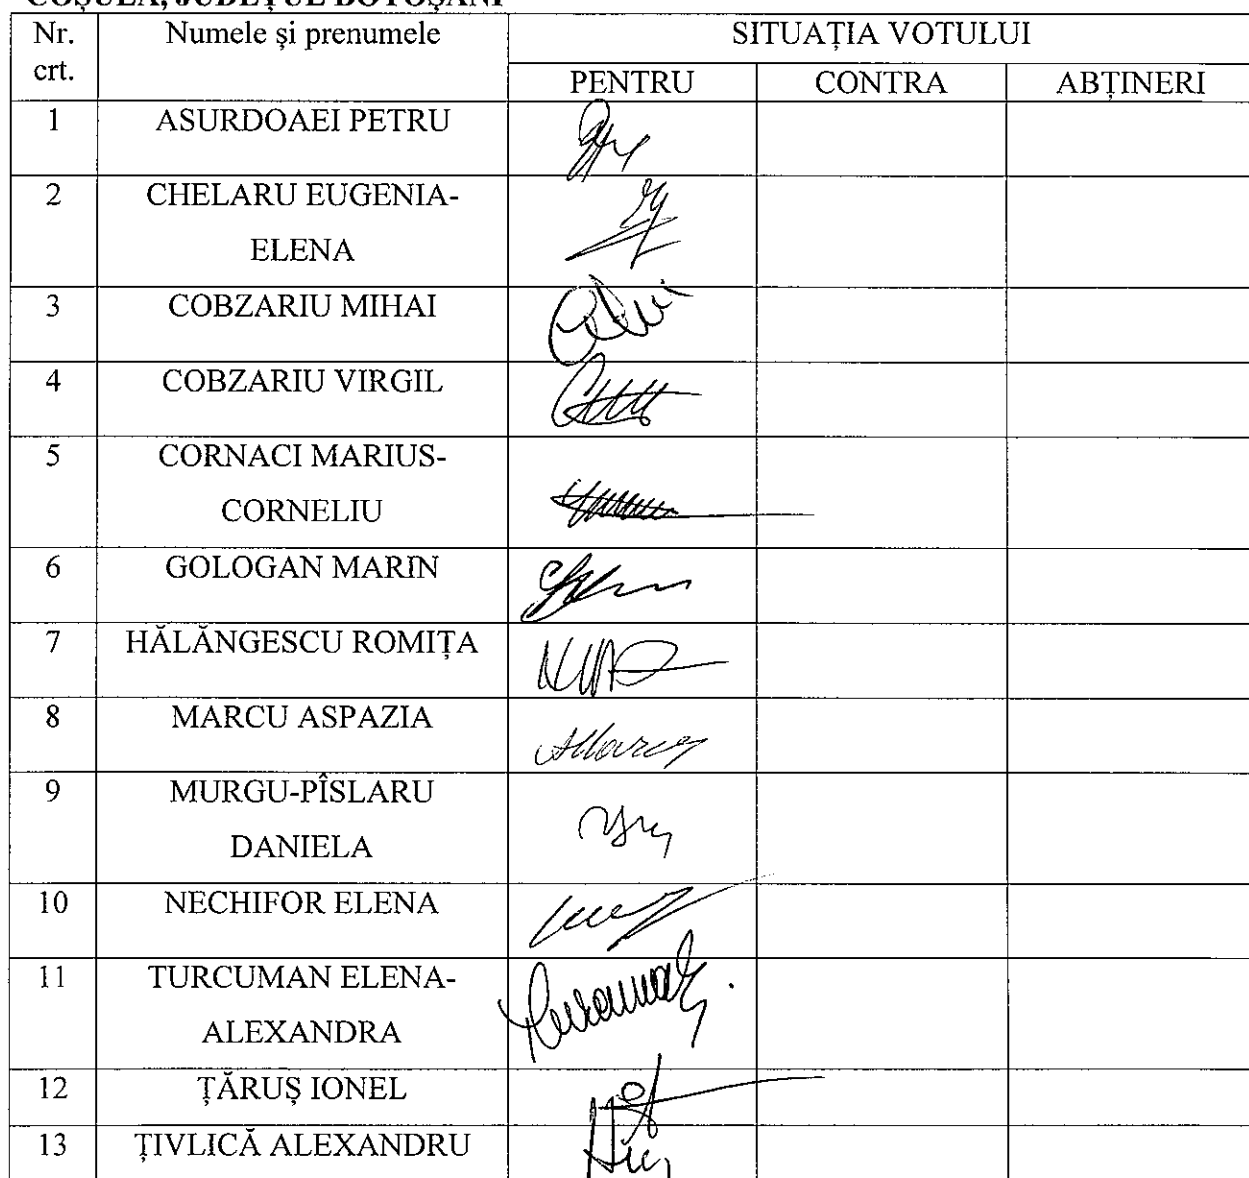 COȘULA, JUDEȚUL BOTOȘANI
Nr. crt. Numele și prenumele SITUAȚIA VOTULUI
PENTRU CONTRA ABȚINERI
1 ASURDOAEI PETRU
2 CHELARU EUGENIA-
ELENA
3 COBZARIU MIHAI
4 COBZARIU VIRGIL
5 CORNACI MARIUS-
CORNELIU
6 GOLOGAN MARIN
7 HĂLĂNGESCU ROMIȚA
8 MARCU ASPAZIA
9 MURGU-PÎSLARU
DANIELA
10 NECHIFOR ELENA
11 TURCUMAN ELENA-
ALEXANDRA
12 ȚĂRUȘ IONEL
13 ȚIVLICĂ ALEXANDRU